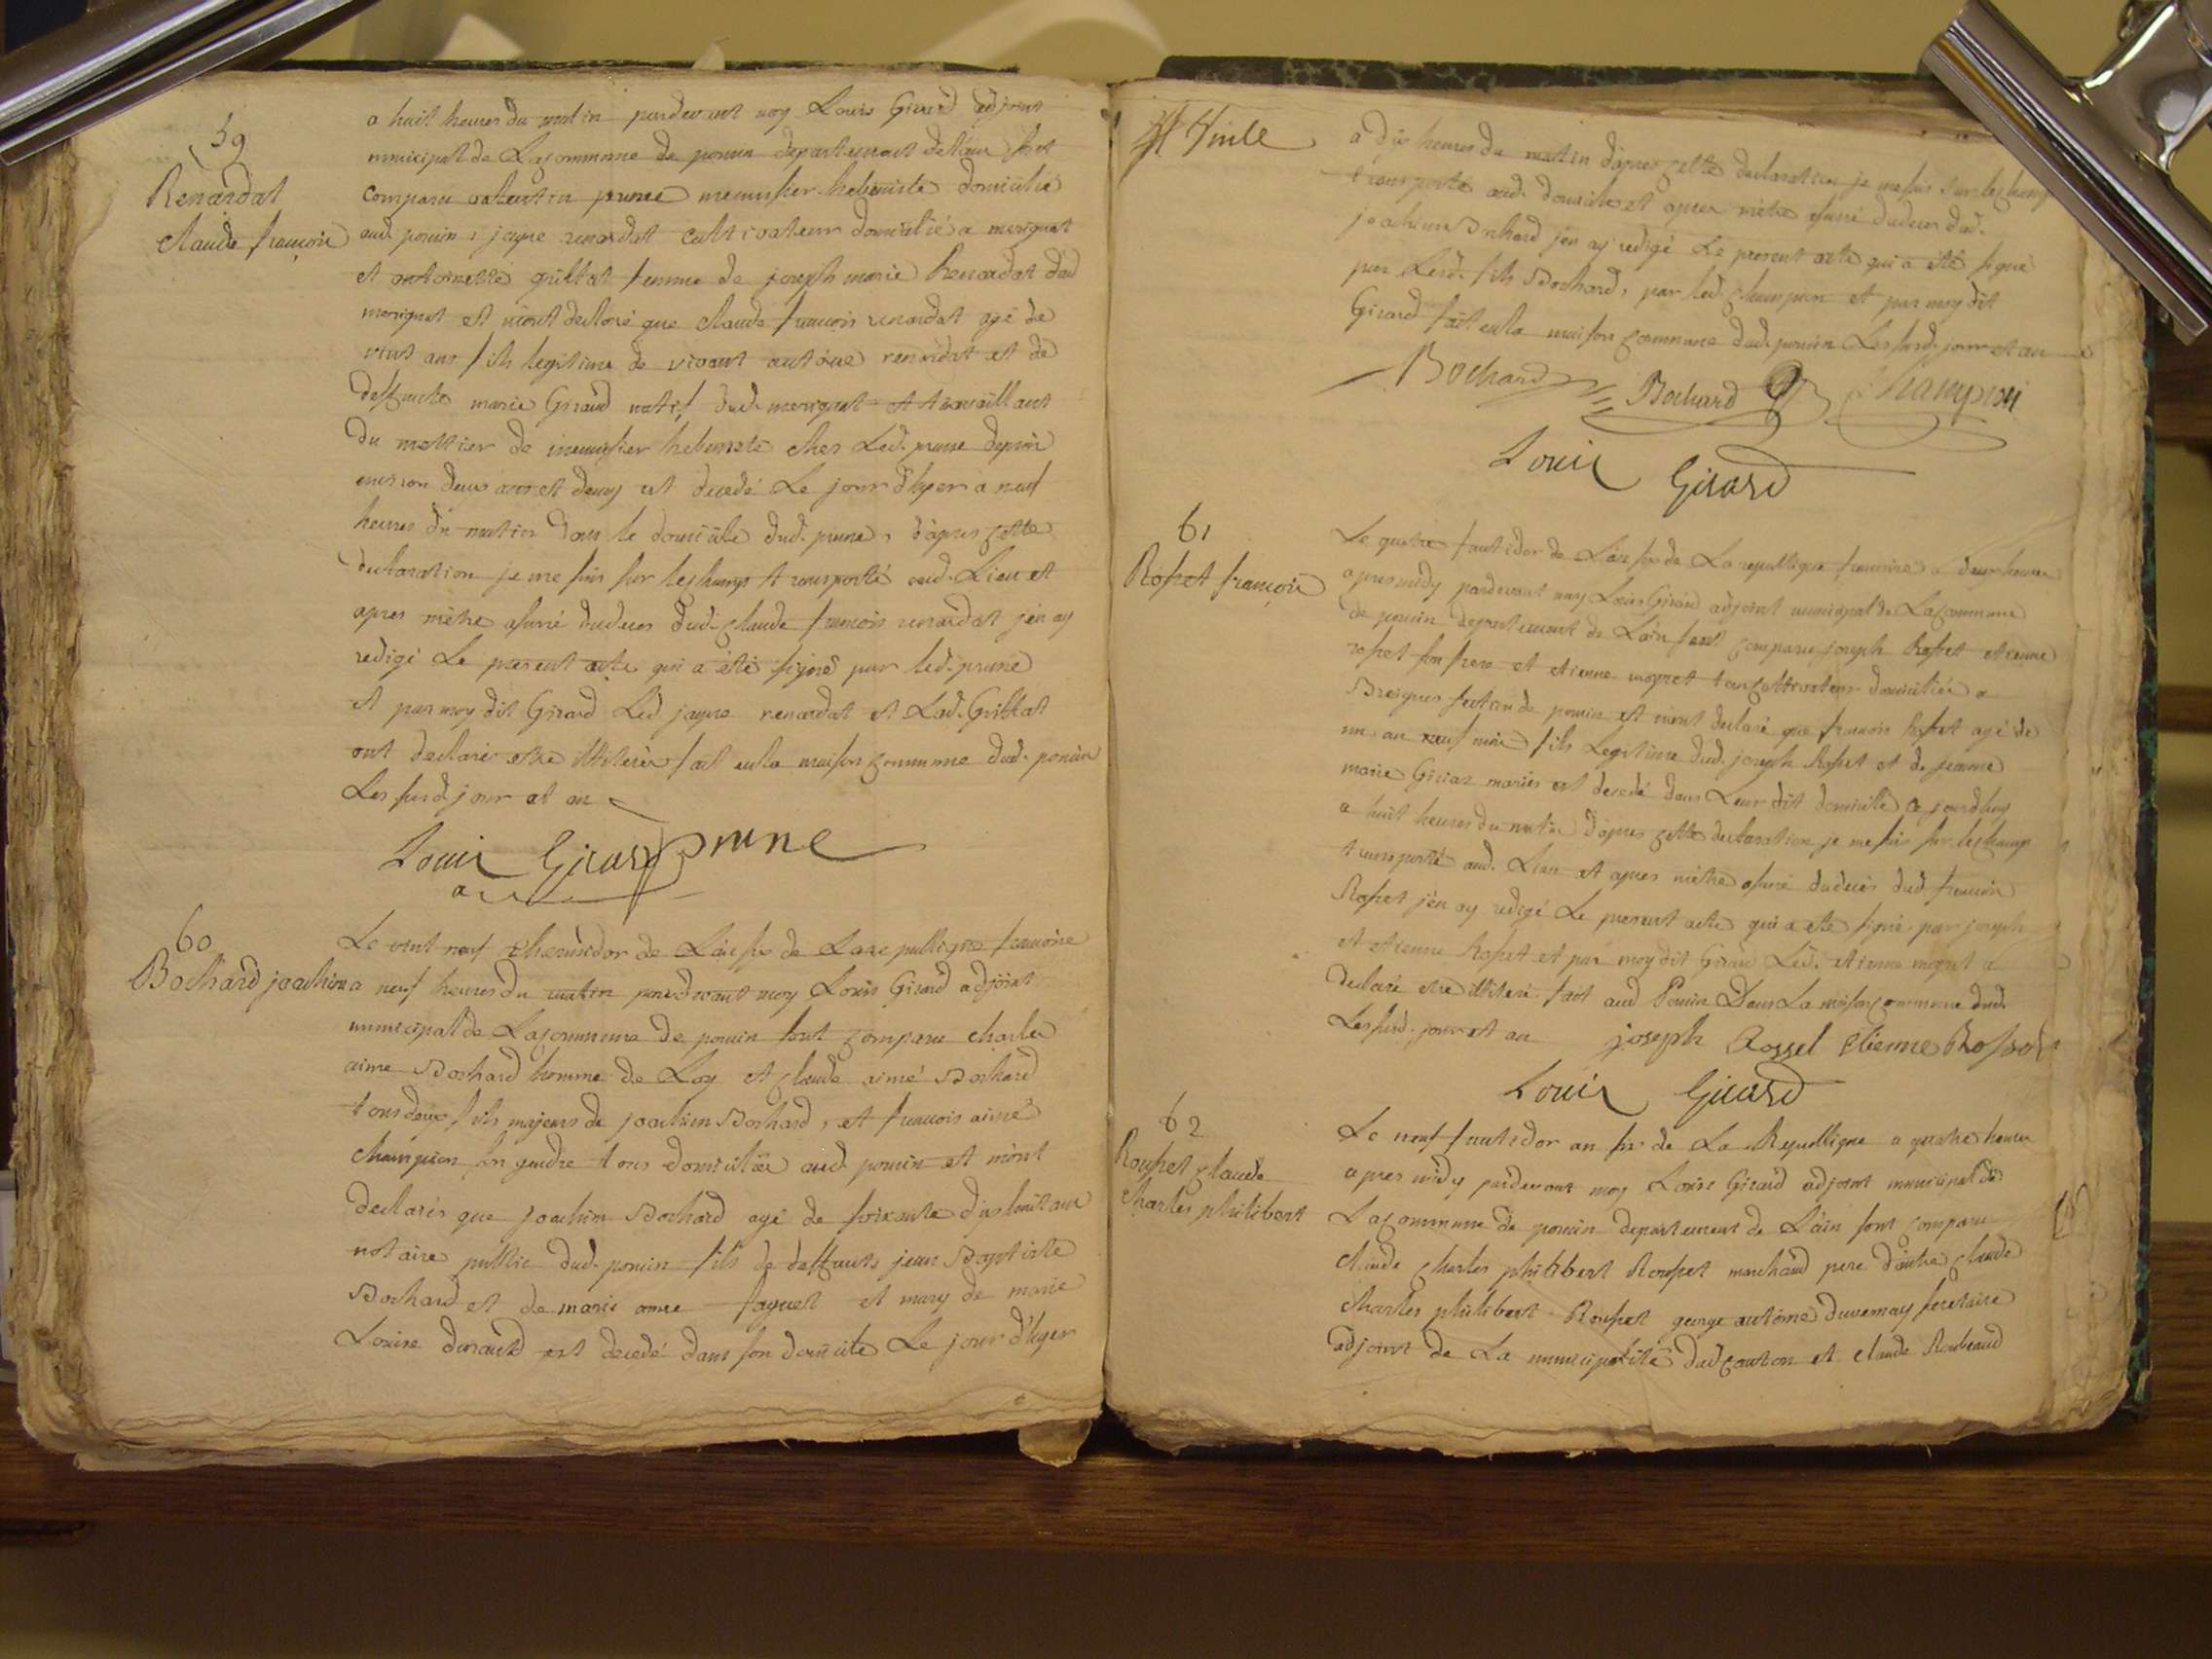 59
Renardat
Claude françois
a huit heures du matin pardevant moy Louis Girard adjoint
municipal de Lacommune de poncin departement de l'ain sont
comparu valentin prune menuisier hebeniste domicilié
aud. poncin, jayme renardat cultivateur domicilié a merignat
et antoinette grillat femme de joseph marie Renardat dud
merignat et m'ont declaré que claude francois renardat agé de
vint ans fils legitime de vivant antoine renardat et de
deffuncte marie Giraud natif dud. merignat et travaillant
du mettier de menuisier hebeniste ches Led. prune depuis
environ deux ans et demy est decedé Le jour d'hyer a neuf
heures du matin dans le domicile dud. prune, d'apres cette
declaration je me suis sur lechamp transporté aud. Lieu et
apres m'etre assuré dudeces dud. claude francois renardat j'en ay
redigé Le present acte qui a été signé par led. prune
et par moy dit Girard Led. jayme renardat et Lad. Grillat
ont declaré estre illiterés fait enla maison commune dud. poncin
Les susd. jour et an
Louis Girard prune
60
Bochard joachim
Le vint neuf thermidor de L'an six de Larepublique francoise
a neuf heures du matin pardevant moy Louis Girard adjoint
municipal de Lacommune de poncin sont comparu charles
aime Bochard homme de Loy et claude aimé Bochard
tous deux fils majeurs de joachim Bochard, et francois aimé
champion son gendre tous domiciliés aud. poncin et m'ont
declarés que joachim Bochard agé de soixante dix huit ans
notaire public dud. poncin fils de deffunts jean Baptiste
Bochard et de marie anne faguet et mary de marie
Louise durand est decedé dans son domicile Le jour d'hyer
a dix heures du matin d'apres cette declaration je me suis sur lechamp
transporté aud. domicile et apres m'etre assuré dudeces dud.
joachim Bochard j'en ay redigé Le present acte qui a été signé
par Lesd. fils Bochard, par led. champion et par moy dit
Girard fait enla maison commune dud. poncin Les susd. jour et an
Bochard Bochard Champion
Louis Girard
61
Rosset françois
Le quatre fructidor de L'an six de La republique francoise a deux heures
apres midy pardevant moy Louis Girard adjoint municipal de Lacommune
de poncin departement de L'ain sont comparu joseph Rosset etienne
rosset son frere et etienne mognet tous cultivateurs domiciliés a
Breignes section de poncin et m'ont declaré que francois Rosset agé de
un an neuf mois fils Legitime dud. joseph Rosset et de jeanne
marie Giriaz mariés est decedé dans Leur dit domicile ce jourdhuy
a huit heures du matin d'apres cette declaration je me suis sur lechamp
transporté aud. Lieu et apres m'etre assuré dudeces dud. francois
Rosset j'en ay redigé Le present acte qui a été signé par joseph
et etienne Rosset et par moy dit Girard Led. etienne mognet a
declaré etre illiteré fait aud Poncin Dans La maison commune dud.
Les susd. jour et an joseph Rossel etienne Rosset
Louis Girard
62
Rousset claude
Charles philibert
Le neuf fructidor an six de La Republique a quatre heures
apres midy pardevant moy Louis Girard adjoint municipal de
Lacommune de poncin departement de L'ain sont comparu
claude charles philibert Rousset marchand pere d'autre claude
charles philibert Rousset george antoine duvernay secretaire
adjoint de La municipalité dud canton et claude Roubeaud